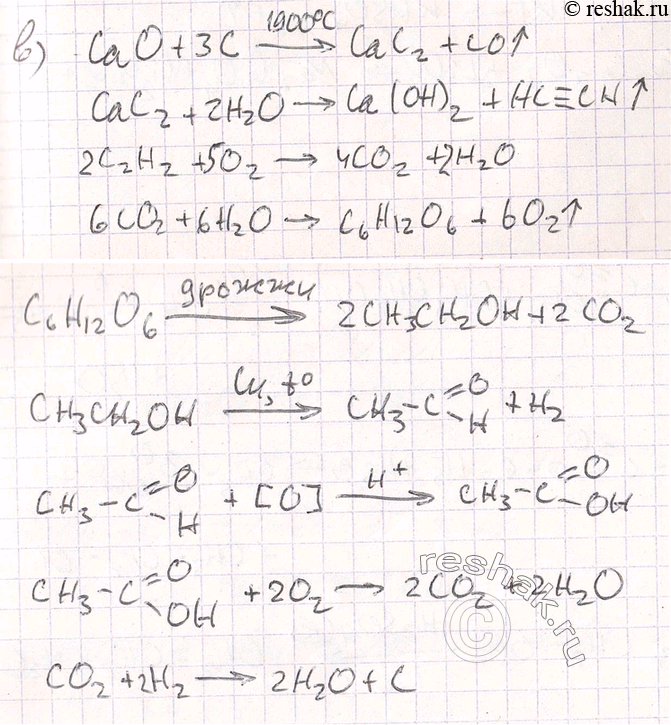 © reshak.ru
в) CaO + 3C 1900°C → CaC₂ + CO↑
CaC₂ + 2H₂O → Ca(OH)₂ + HC≡CH↑
2C₂H₂ + 5O₂ → 4CO₂ + 2H₂O
6CO₂ + 6H₂O → C₆H₁₂O₆ + 6O₂↑
C₆H₁₂O₆ дрожжи → 2CH₃CH₂OH + 2CO₂
CH₃CH₂OH Cu, t° → CH₃-C=O-H + H₂
CH₃-C=O-H + [O] H⁺ → CH₃-C=O-OH
CH₃-C=O-OH + 2O₂ → 2CO₂ + 2H₂O
reshak.ru ©
CO₂ + 2H₂ → 2H₂O + C